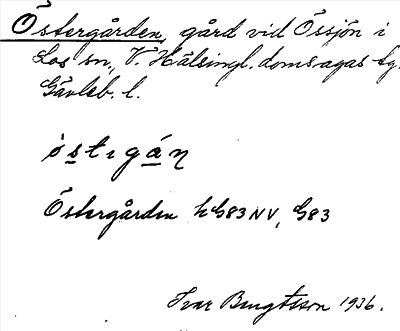 Östergården, gård vid Össjön i
Los sn, V. Hälsingl. domsagas tg.
Gävleb. l.
östıgán
Östergården hG83NV, G83
Ivar Bengtsson 1936.